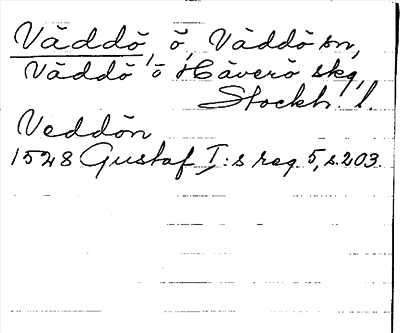 Väddö, ö, Väddö sn,
Väddö o Häverö skg,
Stockh. l.
Veddön
1528 Gustaf I:s reg 5, s. 203.